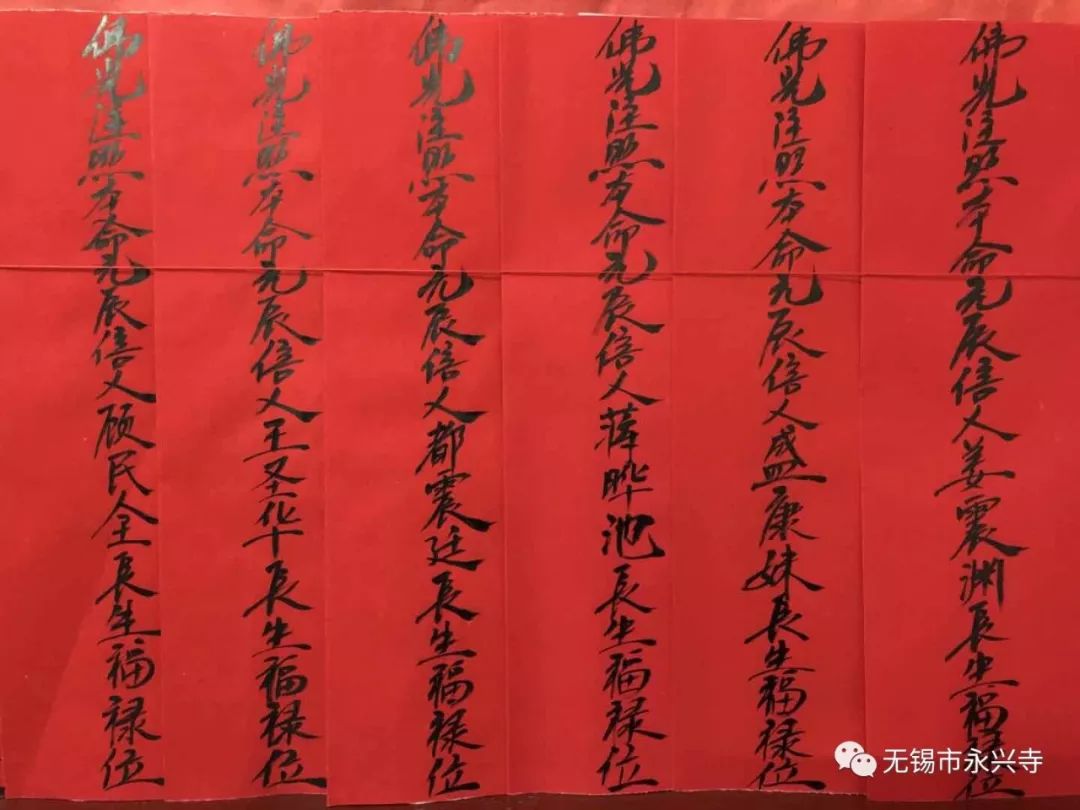 佛光注照本命元辰信人姜震渊長生福禄位
佛光注照本命元辰信人盛康妹長生福禄位
佛光注照本命元辰信人蒋晔池長生福禄位
佛光注照本命元辰信人都震廷長生福禄位
佛光注照本命元辰信人王圣华長生福禄位
佛光注照本命元辰信人顾民全長生福禄位
无锡市永兴寺